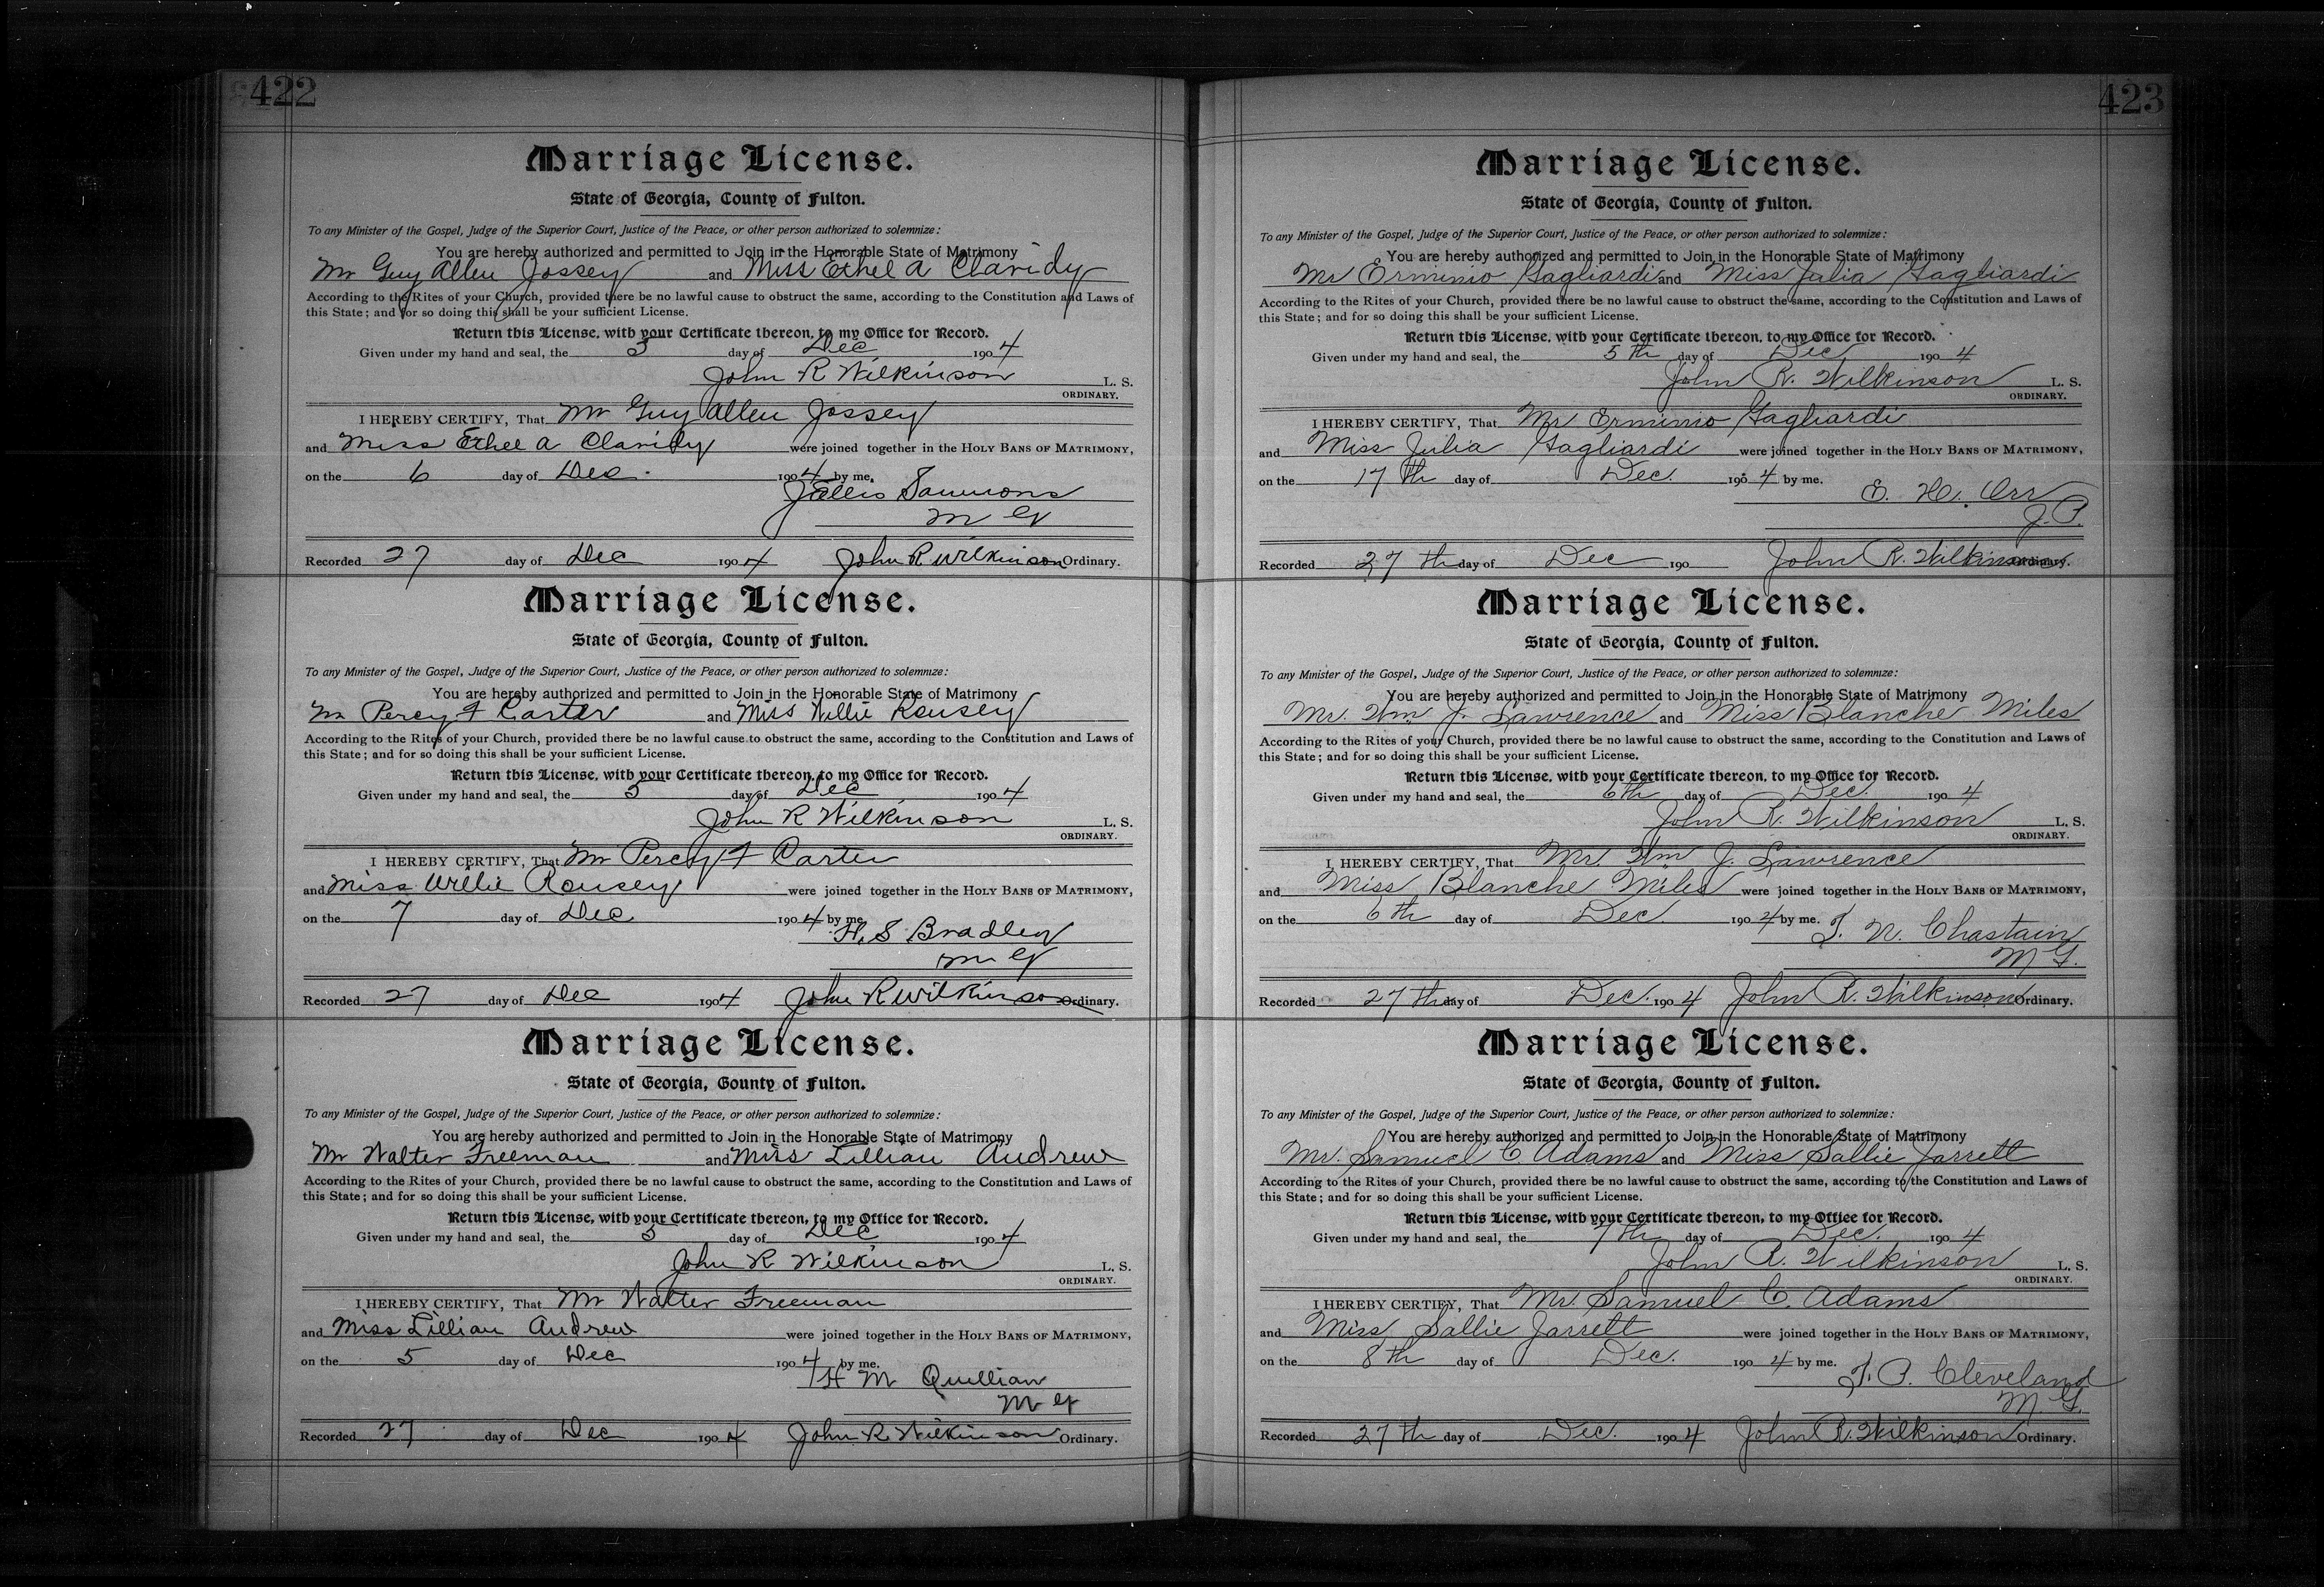 422
Marriage License.
State of Georgia, County of Fulton.
To any Minister of the Gospel, Judge of the Superior Court, Justice of the Peace, or other person authorized to solemnize:
You are hereby authorized and permitted to Join in the Honorable State of Matrimony
Mr Guy Allen Jossey and Miss Ethel A Clavidy
According to the Rites of your Church, provided there be no lawful cause to obstruct the same, according to the Constitution and Laws of
this State; and for so doing this shall be your sufficient License.
Return this License, with your Certificate thereon, to my Office for Record.
Given under my hand and seal, the 5 day of Dec 1904
John R Wilkinson L. S.
ORDINARY.
I HEREBY CERTIFY, That Mr Guy Allen Jossey
and Miss Ethel A Clavidy were joined together in the HOLY BANS OF MATRIMONY,
on the 6 day of Dec. 1904 by me.
Sammons
M G
Recorded 27 day of Dec 1904 John R Wilkinson Ordinary.
Marriage License.
State of Georgia, County of Fulton.
To any Minister of the Gospel, Judge of the Superior Court, Justice of the Peace, or other person authorized to solemnize:
You are hereby authorized and permitted to Join in the Honorable State of Matrimony
Mr Percy F Carter and Miss Willie Rousey
According to the Rites of your Church, provided there be no lawful cause to obstruct the same, according to the Constitution and Laws of
this State; and for so doing this shall be your sufficient License.
Return this License, with your Certificate thereon, to my Office for Record.
Given under my hand and seal, the 5 day of Dec 1904
John R Wilkinson L. S.
ORDINARY.
I HEREBY CERTIFY, That Mr Percy F Carter
and Miss Willie Rousey were joined together in the HOLY BANS OF MATRIMONY,
on the 7 day of Dec 1904 by me
H. S Bradley
M G
Recorded 27 day of Dec 1904 John R Wilkinson Ordinary.
Marriage License.
State of Georgia, County of Fulton.
To any Minister of the Gospel, Judge of the Superior Court, Justice of the Peace, or other person authorized to solemnize:
You are hereby authorized and permitted to Join in the Honorable State of Matrimony
Mr Walter Freeman and Miss Lillian Andrew
According to the Rites of your Church, provided there be no lawful cause to obstruct the same, according to the Constitution and Laws of
this State; and for so doing this shall be your sufficient License.
Return this License, with your Certificate thereon, to my Office for Record.
Given under my hand and seal, the 5 day of Dec 1904
John R Wilkinson L. S.
ORDINARY.
I HEREBY CERTIFY, That Mr Walter Freeman
and Miss Lillian Andrew were joined together in the HOLY BANS OF MATRIMONY,
on the 5 day of Dec 1904 by me.
H M Quillian
M G
Recorded 27 day of Dec 1904 John R. Wilkinson Ordinary.
423
Marriage License.
State of Georgia, County of Fulton.
To any Minister of the Gospel, Judge of the Superior Court, Justice of the Peace, or other person authorized to solemnize:
You are hereby authorized and permitted to Join in the Honorable State of Matrimony
Mr Erminio Gagliardi and Miss Julia Gagliardi
According to the Rites of your Church, provided there be no lawful cause to obstruct the same, according to the Constitution and Laws of
this State; and for so doing this shall be your sufficient License.
Return this License, with your Certificate thereon, to my Office for Record.
Given under my hand and seal, the 5th day of Dec 1904
John R. Wilkinson L. S.
ORDINARY.
I HEREBY CERTIFY, That Mr Erminio Gagliardi
and Miss Julia Gagliardi were joined together in the HOLY BANS OF MATRIMONY,
on the 17th day of Dec. 1904 by me.
E. H. Orr
J. P.
Recorded 27th day of Dec 190 John R. Wilkinson Ordinary.
Marriage License.
State of Georgia, County of Fulton.
To any Minister of the Gospel, Judge of the Superior Court, Justice of the Peace, or other person authorized to solemnize:
You are hereby authorized and permitted to Join in the Honorable State of Matrimony
Mr. Wm J. Lawrence and Miss Blanche Miles
According to the Rites of your Church, provided there be no lawful cause to obstruct the same, according to the Constitution and Laws of
this State; and for so doing this shall be your sufficient License.
Return this License, with your Certificate thereon, to my Office for Record.
Given under my hand and seal, the 6th day of Dec. 1904
John R. Wilkinson L. S.
ORDINARY.
I HEREBY CERTIFY, That Mr. Wm J. Lawrence
and Miss Blanche Miles were joined together in the HOLY BANS OF MATRIMONY,
on the 6th day of Dec. 1904 by me.
J. N. Chastain
M G.
Recorded 27th day of Dec. 1904 John R. Wilkinson Ordinary.
Marriage License.
State of Georgia, County of Fulton.
To any Minister of the Gospel, Judge of the Superior Court, Justice of the Peace, or other person authorized to solemnize:
You are hereby authorized and permitted to Join in the Honorable State of Matrimony
Mr. Samuel C. Adams and Miss Sallie Jarrett
According to the Rites of your Church, provided there be no lawful cause to obstruct the same, according to the Constitution and Laws of
this State; and for so doing this shall be your sufficient License.
Return this License, with your Certificate thereon, to my Office for Record.
Given under my hand and seal, the 7th day of Dec. 1904
John R. Wilkinson L. S.
ORDINARY.
I HEREBY CERTIFY, That Mr. Samuel C. Adams
and Miss Sallie Jarrett were joined together in the HOLY BANS OF MATRIMONY,
on the 8th day of Dec. 1904 by me.
J. P. Cleveland
M. G.
Recorded 27th day of Dec. 1904 John R. Wilkinson Ordinary.